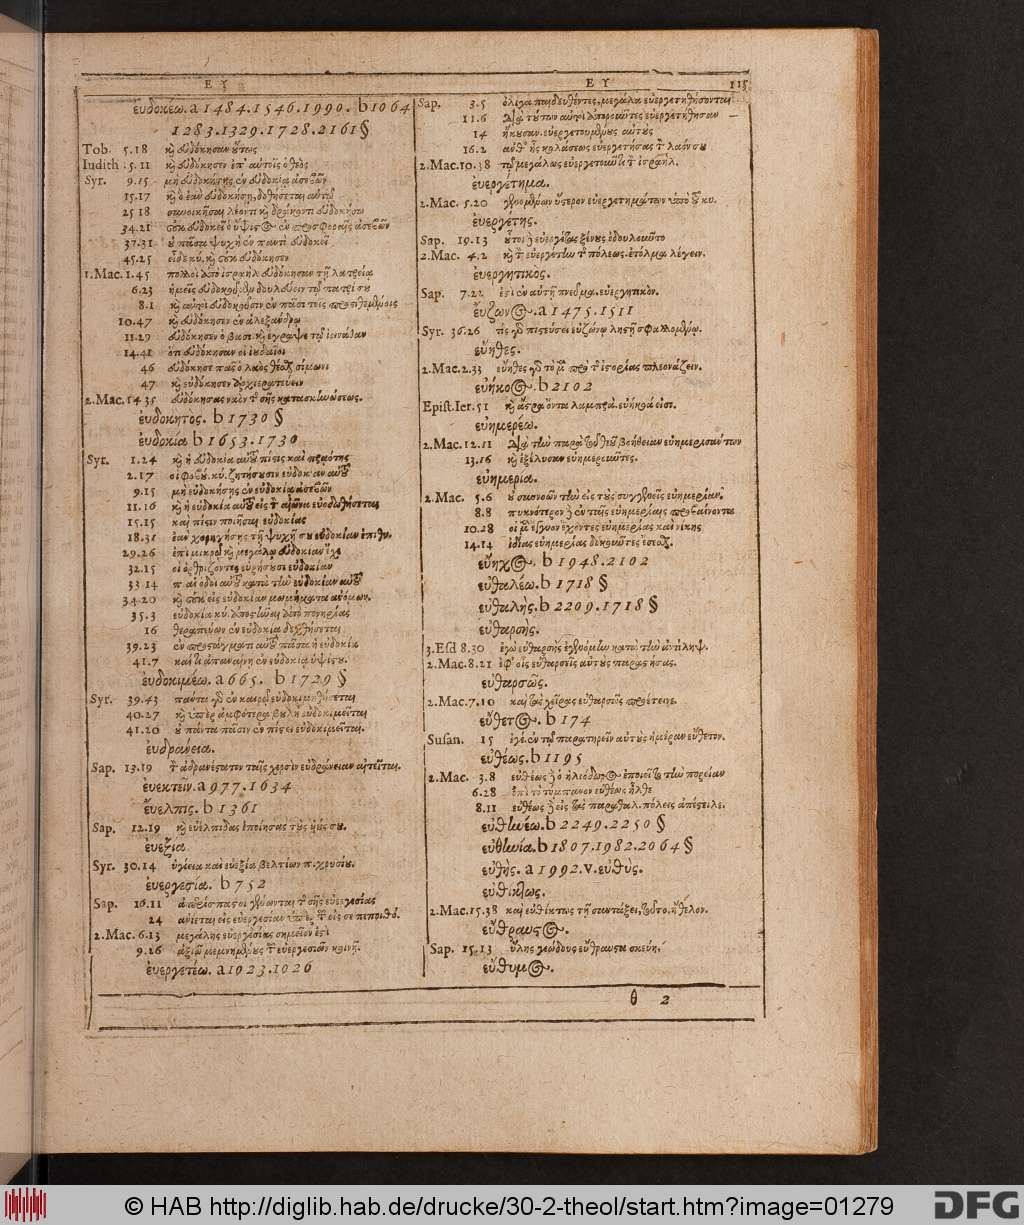 Ε Υ
Ε Υ
115
εὐδοκέω. a 1484.1546.1990. b 1064
1283.1329.1728.2161 §
Tob. 5.18 καὶ εὐδόκησαν οὕτως
Iudith 5.11 καὶ εὐδόκησεν ἐπ' αὐτοῖς ὁ θεὸς
Syr. 9.15 μὴ εὐδοκήσῃς ἐν εὐδοκίᾳ ἀσεβῶν
15.17 καὶ ὃ ἐὰν εὐδοκήσῃ, δοθήσεται αὐτῷ
25.18 συνοικῆσαι λέοντι καὶ δράκοντι εὐδοκήσω
34.21 οὐκ εὐδοκεῖ ὁ ὕψιστος ἐν προσφοραῖς ἀσεβῶν
37.31 οὐ πᾶσα ψυχὴ ἐν παντὶ εὐδοκεῖ
45.25 εἶδε κύ. καὶ οὐκ εὐδόκησεν
1.Mac. 1.45 πολλοὶ ἀπὸ ἰσραὴλ εὐδόκησαν τῇ λατρείᾳ
6.23 ἡμεῖς εὐδοκοῦμεν δουλεύειν τῷ πατρί σου
8.1 καὶ αὐτοὶ εὐδοκοῦσιν ἐν πᾶσι τοῖς προστιθεμένοις
10.47 καὶ εὐδόκησεν ἐν ἀλεξάνδρῳ
11.29 εὐδόκησεν ὁ βασι. καὶ ἔγραψε τῷ ἰωνάθαν
14.41 ὅτι εὐδόκησαν οἱ ἰουδαῖοι
46 εὐδόκησε πᾶς ὁ λαὸς θέσθαι σίμωνι
47 καὶ εὐδόκησεν ἀρχιερατεύειν
2.Mac. 14.35 εὐδόκησας ναὸν τῆς σῆς κατασκηνώσεως.
εὐδοκητὸς. b 1730 §
εὐδοκία b 1653.1730
Syr. 1.24 καὶ ἡ εὐδοκία αὐτοῦ πίστις καὶ πραότης
2.17 οἱ φοβού. κύ. ζητήσουσιν εὐδοκίαν αὐτοῦ
9.15 μὴ εὐδοκήσῃς ἐν εὐδοκίᾳ ἀσεβῶν
11.16 καὶ ἡ εὐδοκία αὐτοῦ εἰς τὸν αἰῶνα εὐοδωθήσεται
15.15 καὶ πίστιν ποιῆσαι εὐδοκίας
18.31 ἐὰν χορηγήσῃς τῇ ψυχῇ σου εὐδοκίαν ἐπιθυ.
29.26 ἐπὶ μικρῷ καὶ μεγάλῳ εὐδοκίαν ἔχε
32.15 οἱ ὀρθρίζοντες εὑρήσουσι εὐδοκίαν
33.14 πᾶσαι ὁδοὶ αὐτοῦ κατὰ τὴν εὐδοκίαν αὐτοῦ
34.20 καὶ οὐκ εἰς εὐδοκίαν μωμήματα ἀνόμων.
35.3 εὐδοκία κυ. ἀποστῆναι ἀπὸ πονηρίας
16 θεραπεύων ἐν εὐδοκίᾳ δεχθήσεται
39.23 ἐν προστάγματι αὐτοῦ πᾶσα ἡ εὐδοκία
41.7 καὶ τί ἀπαναίνῃ ἐν εὐδοκίᾳ ὑψίστου.
εὐδοκιμέω. a 665. b 1729 §
Syr. 39.43 πάντα γὰρ ἐν καιρῷ εὐδοκιμηθήσεται
40.27 καὶ ὑπὲρ ἀμφότερα βουλὴ εὐδοκιμεῖται
41.20 οὐ πάντα πᾶσιν ἐν πίστει εὐδοκιμεῖται.
εὐδράνεια.
Sap. 13.19 τὸ ἀδρανέστατον ταῖς χερσὶν εὐδράνειαν αἰτεῖται.
εὐεκτεῖν. a 977.1634
εὔελπις. b 1361
Sap. 12.19 καὶ εὐέλπιδας ἐποίησας τοὺς υἱούς σου.
εὐεξία
Syr. 30.14 ὑγίεια καὶ εὐεξία βελτίων π. χρυσίου.
εὐεργεσία. b 752
Sap. 16.11 ἀπερίσπαστοι γένωνται τῆς σῆς εὐεργεσίας
24 ἀνίεται εἰς εὐεργεσίαν ὑπὲρ τῶν εἰς σὲ πεποιθό.
2.Mac. 6.13 μεγάλης εὐεργεσίας σημεῖον ἐστὶ
9.26 ἀξιῶ μεμνημένους τῶν εὐεργεσιῶν κοινῇ.
εὐεργετέω. a 1023.1026
Sap. 3.5 ὀλίγα παιδευθέντες, μεγάλα εὐεργετηθήσονται
11.6 διὰ τούτων αὐτοὶ ἀποροῦντες εὐεργετήθησαν
14 ἤκουσαν εὐεργετουμένους αὐτοὺς
16.2 ἀνθ' ἧς κολάσεως εὐεργετήσας τὸν λαόν σου
2.Mac. 10.38 τῷ μεγάλως εὐεργετοῦντι τὸν ἰσραήλ.
εὐεργέτημα.
2.Mac. 5.20 γενομένων ὕστερον εὐεργετημάτων ὑπὸ τοῦ κυ.
εὐεργέτης.
Sap. 19.13 οὗτοι δὲ εὐεργέτας ξένους ἐδουλοῦντο
2.Mac. 4.2 καὶ τὸν εὐεργέτην τῆς πόλεως. ἐτόλμα λέγειν.
εὐεργητικος.
Sap. 7.22 ἔστι ἐν αὐτῇ πνεῦμα. εὐεργητικὸν.
εὔζωνος. a 1475.1511
Syr. 36.26 τίς γὰρ πιστεύσει εὐζώνῳ λῃστῇ σφαλλομένῳ.
εὐήθες.
2.Mac. 2.33 εὔηθες γὰρ τὸ μὲν πρὸ τῆς ἱστορίας πλεονάζειν.
εὐήκοος. b 2102
Epist.Ier. 51 καὶ ἄστρα ὄντα λαμπρὰ. εὐήκοά εἰσι.
εὐημερέω.
2.Mac. 12.11 διὰ τὴν παρὰ τοῦ θεοῦ βοήθειαν εὐημερησάντων
13.16 καὶ ἐξέλυσαν εὐημεροῦντες.
εὐημερία.
2.Mac. 5.6 οὐ συννοῶν τὴν εἰς τοὺς συγγενεῖς εὐημερίαν
8.8 πυκνότερον δὲ ἐν ταῖς εὐημερίαις προβαίνοντα
10.28 οἱ μὲν ἔγγυον ἔχοντες εὐημερίας καὶ νίκης
14.14 ἰδίας εὐημερίας δοκοῦντες ἔσεσθαι.
εὔηχος. b 1948.2102
εὐθαλέω. b 1718 §
εὐθαλὴς. b 2209.1718 §
εὐθαρσὴς.
3.Esd 8.30 ἐγὼ εὐθαρσὴς ἐγενόμην κατὰ τὴν ἀντίληψ.
2.Mac. 8.21 ἐφ' οἷς εὐθαρσεῖς αὐτοὺς παραστήσας.
εὐθαρσῶς.
2.Mac. 7.10 καὶ τὰς χεῖρας εὐθαρσῶς προέτεινε.
εὔθετος. b 174
Susan. 15 ἐγέ. ἐν τῷ παρατηρεῖν αὐτοὺς ἡμέραν εὔθετον.
εὐθέως. b 1195
2.Mac. 3.8 εὐθέως δὲ ὁ ἡλιόδωρος ἐποιεῖτο τὴν πορείαν
6.28 ἐπὶ τὸ τύμπανον εὐθέως ἦλθε
8.11 εὐθέως δὲ εἰς τὰς παραθαλ. πόλεις ἀπέστειλε.
εὐθηνέω. b 2249.2250 §
εὐθηνία. b 1807.1982.2064 §
εὐθὴς. a 1992. v. εὐθὺς.
εὐθίκτως.
2.Mac. 15.38 καὶ εὐθίκτως τῇ συντάξει, τοῦτο. ἤθελον.
εὔθραυστος.
Sap. 15.13 ὕλης γεώδους εὔθραυστα σκεύη.
εὔθυμος.
θ 2
© HAB http://diglib.hab.de/drucke/30-2-theol/start.htm?image=01279
DFG